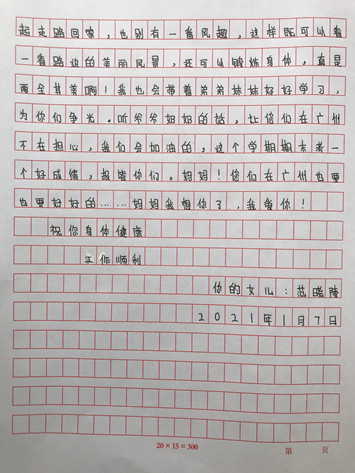 起走路回家，也别有一番风趣，这样既可以看
一看路边的美丽风景，还可以锻炼身体，真是
两全其美啊！我也会带着弟弟妹妹好好学习，
为你们争光。听爷爷奶奶的话，让您们在广州
不在担心，我们会加油的，这个学期期末考一
个好成绩，报答你们。妈妈！您们在广州也要
也要好好的……妈妈我想你了，我爱你！
祝你身体健康
工作顺利
你的女儿：范
2021年1月7日
20×15=300
第 页